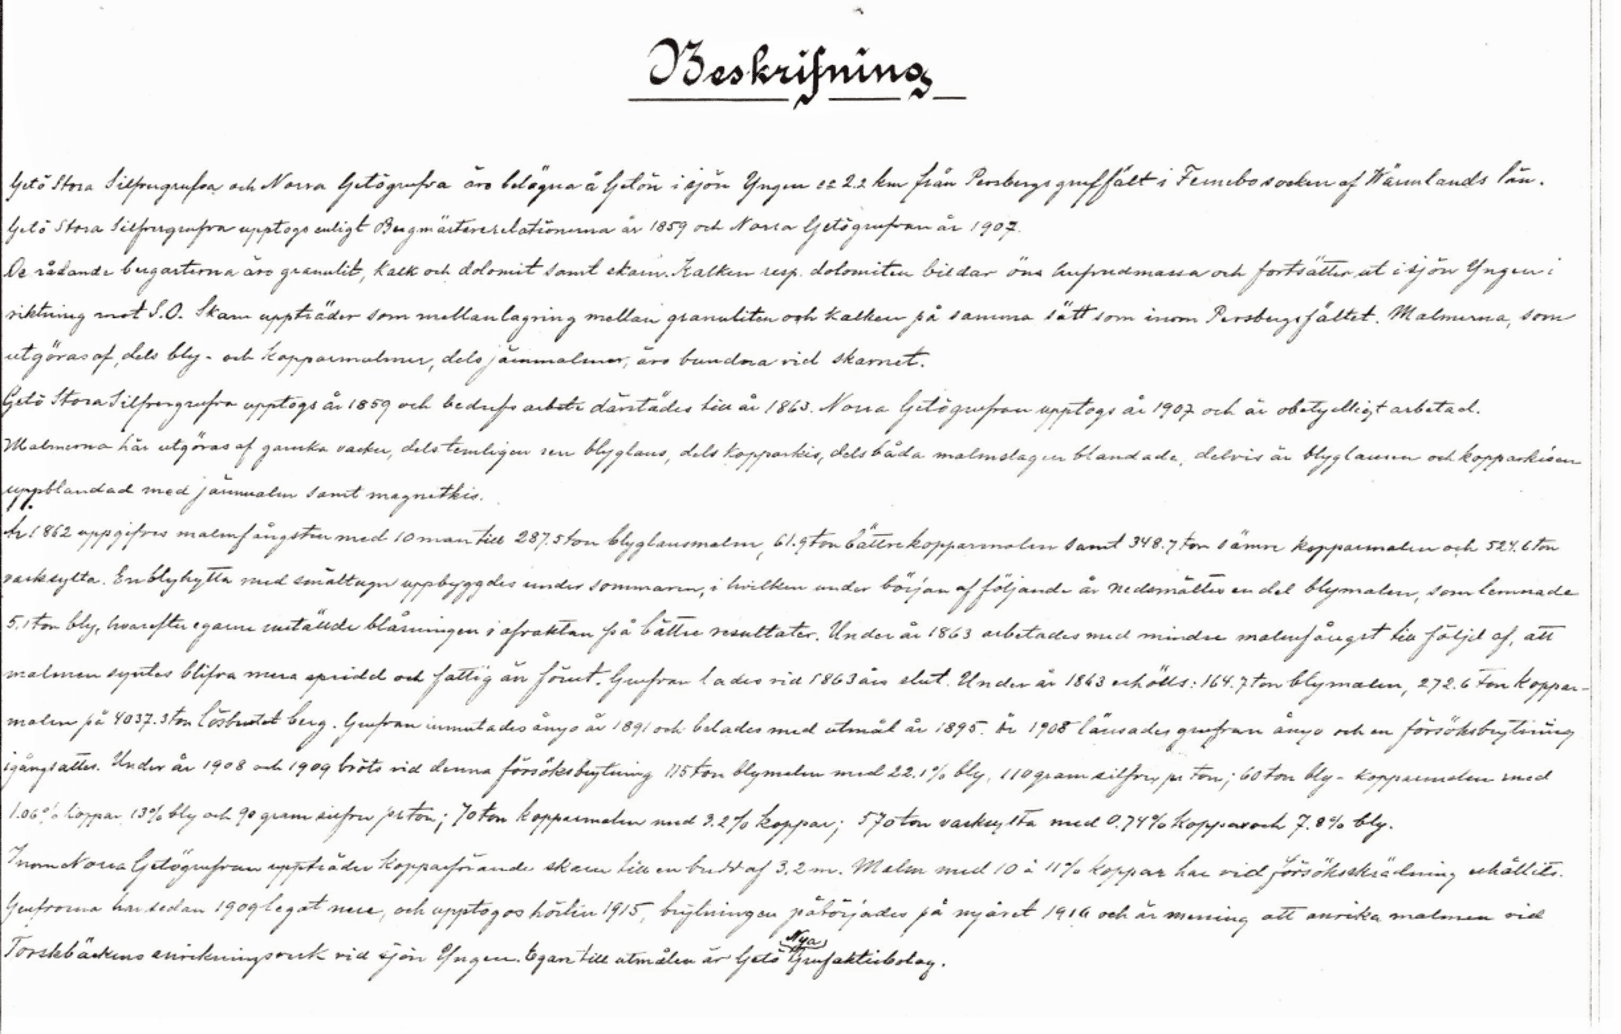 Beskrifning
Getö Stora Silfvergrufva och Norra Getögrufva äro belägna å Getön i sjön Yngen ca 2.2 km från Persbergs gruffält i Fernebo socken af Wärmlands län.
Getö Stora Silfvergrufva upptogs enligt Bergmästarerelationerna år 1859 och Norra Getögrufvan år 1907.
De rådande bergarterna äro granulit, kalk och dolomit samt skarn. Kalken resp. dolomiten bildar öns hufvudmassa och fortsätter ut i sjön Yngen i
riktning mot S.O. Skarn uppträder som mellanlagring mellan granuliten och kalken på samma sätt som inom Persbergsfältet. Malmerna, som
utgöras af, dels bly- och kopparmalmer, dels järnmalmer, äro bundna vid skarnet.
Getö Stora Silfvergrufva upptogs år 1859 och bedrefs arbete därstädes till år 1863. Norra Getögrufvan upptogs år 1907 och är obetydligt arbetad.
Malmerna här utgöras af ganska vacker, dels temligen ren blyglans, dels kopparkis, dels båda malmslagen blandade, delvis är blyglansen och kopparkisen
uppblandad med järnmalm samt magnetkis.
År 1862 uppgifves malmfångsten med 10 man till 287.5 ton blyglansmalm, 61.9 ton bättre kopparmalm samt 348.7 ton sämre kopparmalm och 524.6 ton
vasksylta. En blyhytta med smältugn uppbyggdes under sommaren, i hvilken under början af följande år nedsmältes en del blymalm, som lemnade
5.1 ton bly, hvarefter egarne inställde blåsningen i afvaktan på bättre resultater. Under år 1863 arbetades med mindre malmfångst till följd af, att
malmen syntes blifva mera spridd och fattig än förut. Grufvan lades vid 1863 års slut. Under år 1863 erhölls: 164.7 ton blymalm, 272.6 ton koppar-
malm på 4037.3 ton lösbrutet berg. Grufvan inmutades ånyo år 1891 och belades med utmål år 1895. År 1908 länsades grufvan ånyo och en försöksbrytning
igångsattes. Under år 1908 och 1909 bröts vid denna försöksbrytning 115 ton blymalm med 22.1% bly, 110 gram silfver pr ton; 60 ton bly-kopparmalm med
1.06% koppar, 13% bly och 90 gram silfver pr ton; 70 ton kopparmalm med 3.2% koppar; 570 ton vasksylta med 0.74% koppar och 7.8% bly.
Inom Norra Getögrufvan uppträder kopparförande skarn till en bredd af 3.2 m. Malm med 10 à 11% koppar har vid försöksskrädning erhållits.
Grufvorna har sedan 1909 legat nere, och upptogos hösten 1915, brytningen påbörjades på nyåret 1916 och är mening att anrika malmen vid
Torskbäckens anrikningsverk vid sjön Yngen. Egare till utmålen är Getö Nya Grufaktiebolag.